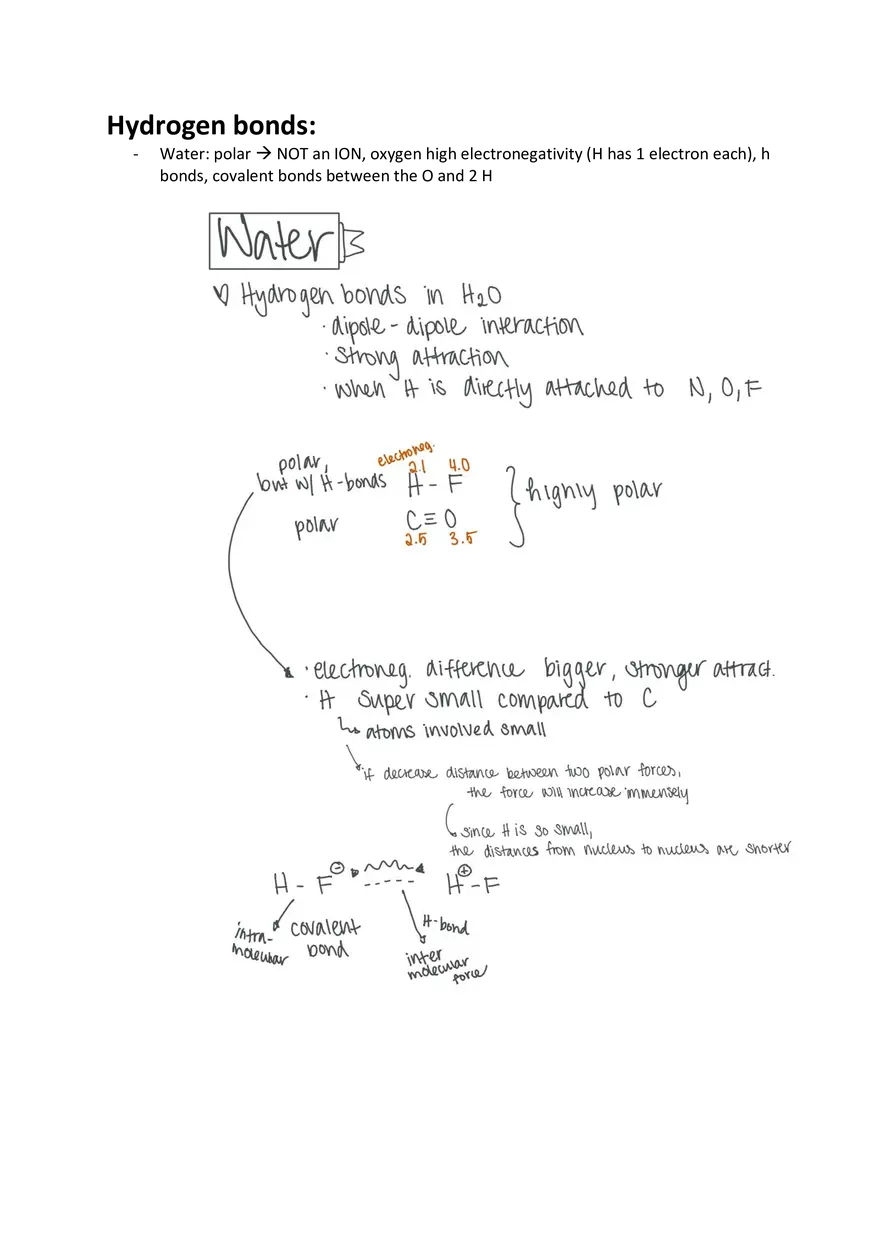 Hydrogen bonds:
- Water: polar → NOT an ION, oxygen high electronegativity (H has 1 electron each), h
bonds, covalent bonds between the O and 2 H
Water
♡ Hydrogen bonds in H₂O
· dipole - dipole interaction
· Strong attraction
· when H is directly attached to N, O, F
polar,
but w/ H-bonds
electroneg.
2.1 4.0
H - F
polar
C≡O
2.5 3.5
highly polar
· electroneg. difference bigger, stronger attract.
· H super small compared to C
↳ atoms involved small
if decrease distance between two polar forces,
the force will increase immensely
since H is so small,
the distances from nucleus to nucleus are shorter
H - F⊖ ----- H⊕-F
intra-
molecular
covalent
bond
H-bond
inter
molecular
force